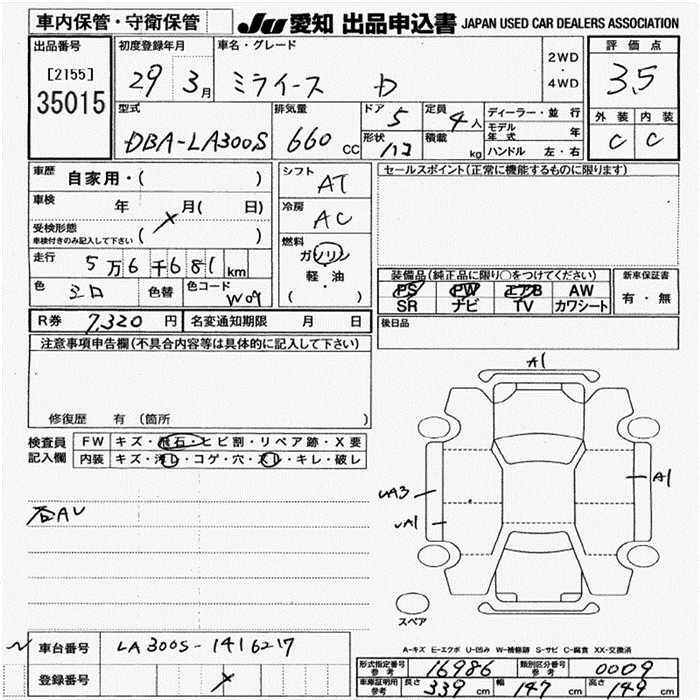 車内保管・守衛保管
JU 愛知 出品申込書 JAPAN USED CAR DEALERS ASSOCIATION
出品番号
[2155]
35015
初度登録年月
29 3月
車名・グレード
ミライース D
2WD
・
4WD
評価点
3.5
型式
DBA-LA300S
排気量
660 cc
ドア 5
形状 ハコ
定員 4人
積載 kg
ディーラー・並行
モデル年式 年
ハンドル 左・右
外装 内装
C C
車歴 自家用・( )
車検 年 月( 日)
受検形態
車検付きのみ記入して下さい ( )
走行 5万6千681km
色 シロ 色替 色コード W09
シフト AT
冷房 AC
燃料
ガソリン
軽・油
( )
セールスポイント(正常に機能するものに限ります)
装備品(純正品に限り○をつけてください)
PS PW エアB AW
SR ナビ TV カワシート
新車保証書
有・無
R券 7,320円 名変通知期限 月 日
後日品
注意事項申告欄(不具合内容等は具体的に記入して下さい)
修復歴 有(箇所
検査員記入欄
FW キズ・飛石・ヒビ割・リペア跡・X要
内装 キズ・汚レ・コゲ・穴・スレ・キレ・破レ
A1
A1
UA3
UA1
スペア
A-キズ E-エクボ U-凹み W-補修跡 S-サビ C-腐食 XX-交換済
車台番号 LA300S-1416217
登録番号
形式指定番号参考 16986 類別区分番号参考 0009
車庫証明用参考 長さ 339cm 幅 147cm 高さ 149cm